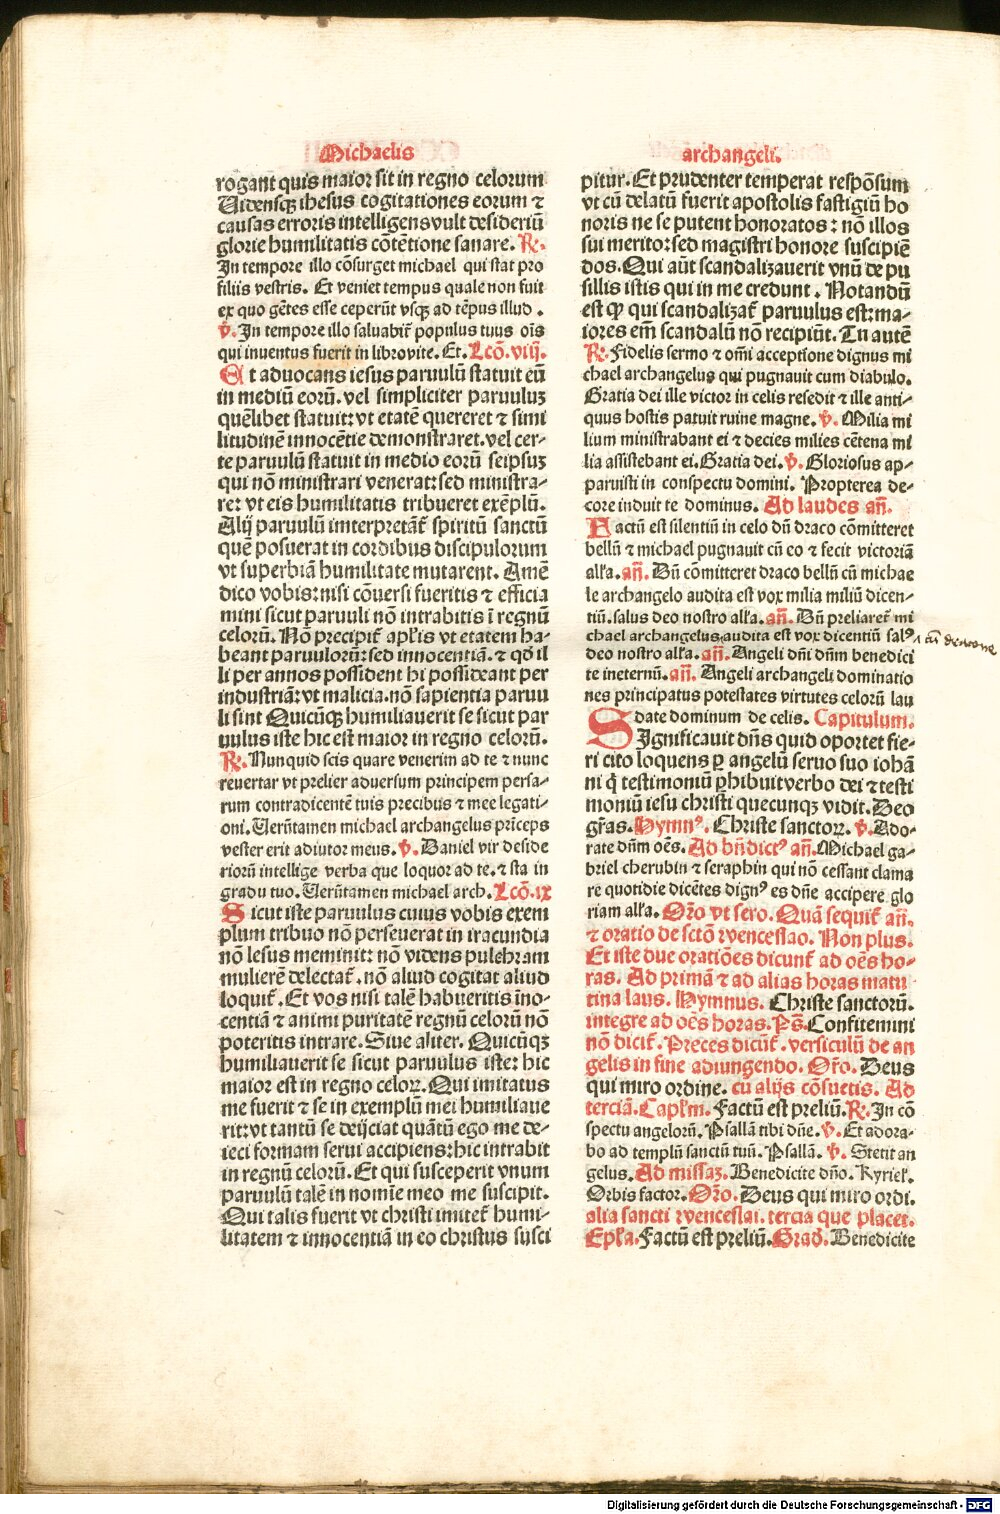 Michaelis
rogant quis maior sit in regno celorum
Uidensqꝫ ihesus cogitationes eorum ⁊
causas erroris intelligens vult desideriū
glorie humilitatis cōtētione sanare. R⁊.
In tempore illo cōsurget michael qui stat pro
filiis vestris. Et veniet tempus quale non fuit
ex quo gētes esse ceperūt vsqꝫ ad tēpus illud .
v̄. In tempore illo saluabit̄ populus tuus oīs
qui inuentus fuerit in libro vite. Et. Lcō. viij.
Et aduocans iesus paruulū statuit eū
in mediū eorū. vel simpliciter paruuluꝫ
quēlibet statuit: vt etatē quereret ⁊ simi
litudinē innocētie demonstraret. vel cer-
te paruulū statuit in medio eorū seipsuꝫ
qui nō ministrari venerat: sed ministra-
re: vt eis humilitatis tribueret exēplū.
Alij paruulū interpretāt̄ spiritū sanctū
quē posuerat in cordibus discipulorum
vt superbiā humilitate mutarent. Amē
dico vobis: nisi cōuersi fueritis ⁊ efficia
mini sicut paruuli nō intrabitis ī regnū
celorū. Nō precipit̄ apl'is vt etatem ha-
beant paruulorū: sed innocentiā. ⁊ qd' il
li per annos possident hi possideant per
industriā: vt malicia. nō sapientia paruu
li sint Quicūqꝫ humiliauerit se sicut par
uulus iste hic est maior in regno celorū.
R⁊. Nunquid scis quare venerim ad te ⁊ nunc
reuertar vt prelier aduersum principem persa-
rum contradicentē tuis precibus ⁊ mee legati-
oni. Uerūtamen michael archangelus prīceps
vester erit adiutor meus. v̄. Daniel vir deside
riorū intellige verba que loquor ad te. ⁊ sta in
gradu tuo. Uerūtamen michael arch. Lcō. ix
Sicut iste paruulus cuius vobis exem
plum tribuo nō perseuerat in iracundia
nō lesus meminit: nō videns pulchram
mulierē delectat̄ . nō aliud cogitat aliud
loquit̄. Et vos nisi talē habueritis īno-
centiā ⁊ animi puritatē regnū celorū nō
poteritis intrare. Siue aliter. Quicūqꝫ
humiliauerit se sicut paruulus iste: hic
maior est in regno celoꝝ. Qui imitatus
me fuerit ⁊ se in exemplū mei humiliaue
rit: vt tantū se deijciat quātū ego me de-
ieci formam serui accipiens: hic intrabit
in regnū celorū. Et qui susceperit vnum
paruulū talē in noīe meo me suscipit.
Qui talis fuerit vt christi imitet̄ humi-
litatem ⁊ innocentiā in eo christus susci
archangeli.
pitur. Et prudenter temperat respōsum
vt cū delatū fuerit apostolis fastigiū ho
noris ne se putent honoratos: nō illos
sui merito: sed magistri honore suscipiē
dos. Qui aūt scandalizauerit vnū de pu
sillis istis qui in me credunt . Notandū
est ꝙ qui scandalizat̄ paruulus est: ma-
iores em̄ scandalū nō recipiūt. Tu autē
R⁊. Fidelis sermo ⁊ om̄i acceptione dignus mi
chael archangelus qui pugnauit cum diabulo.
Gratia dei ille victor in celis resedit ⁊ ille anti-
quus hostis patuit ruine magne. v̄. Milia mi
lium ministrabant ei ⁊ decies milies cētena mi
lia assistebant ei. Gratia dei. v̄. Gloriosus ap-
paruisti in conspectu domini. Propterea de-
core induit te dominus. Ad laudes an̄.
Factū est silentiū in celo dū draco cōmitteret
bellū ⁊ michael pugnauit cū eo ⁊ fecit victoriā
all'a. an̄. Dū cōmitteret draco bellū cū michae
le archangelo audita est vox milia miliū dicen-
tiū. salus deo nostro all'a. an̄. Dū preliaret̄ mi
chael archangelus audita est vox dicentiū salꝰ
^ cū dracone
deo nostro all'a. an̄. Angeli dn̄i dn̄m benedici
te ineternū. an̄. Angeli archangeli dominatio
nes principatus potestates virtutes celorū lau
date dominum de celis. Capitulum.
Significauit dn̄s quid oportet fie-
ri cito loquens ꝑ angelū seruo suo iohā
ni q̄ testimoniū ꝑhibuit verbo dei ⁊ testi
moniū iesu christi quecunqꝫ vidit. Deo
gr̄as. Hymnꝰ. Christe sanctoꝝ. v̄. Ado-
rate dn̄m oēs. Ad bn̄dictꝰ an̄. Michael ga-
briel cherubin ⁊ seraphin qui nō cessant clama
re quotidie dicētes dignꝰ es dn̄e accipere glo
riam all'a. Or̄o vt sero. Quā sequit̄ an̄.
⁊ oratio de sctō wenceslao. Non plus.
Et iste due oratiōes dicunt̄ ad oēs ho-
ras. Ad primā ⁊ ad alias horas matu
tina laus. Hymnus. Christe sanctorū.
integre ad oēs horas. Ps̄. Confitemini
nō dicit̄. Preces dicūt̄ . versiculū de an
gelis in fine adiungendo. Or̄o. Deus
qui miro ordine. cū alijs cōsuetis. Ad
terciā. Capl'm. Factū est preliū. R⁊. In cō
spectu angelorū. Psallā tibi dn̄e. v̄. Et adora-
bo ad templū sanctū tuū. Psallā. v̄. Stetit an
gelus. Ad missaꝫ. Benedicite dn̄o. Kyriel'.
Orbis factor. Or̄o. Deus qui miro ordi.
alia sancti wenceslai. tercia que placet.
Epl'a. Factū est preliū. Grad'. Benedicite
Digitalisierung gefördert durch die Deutsche Forschungsgemeinschaft - DFG